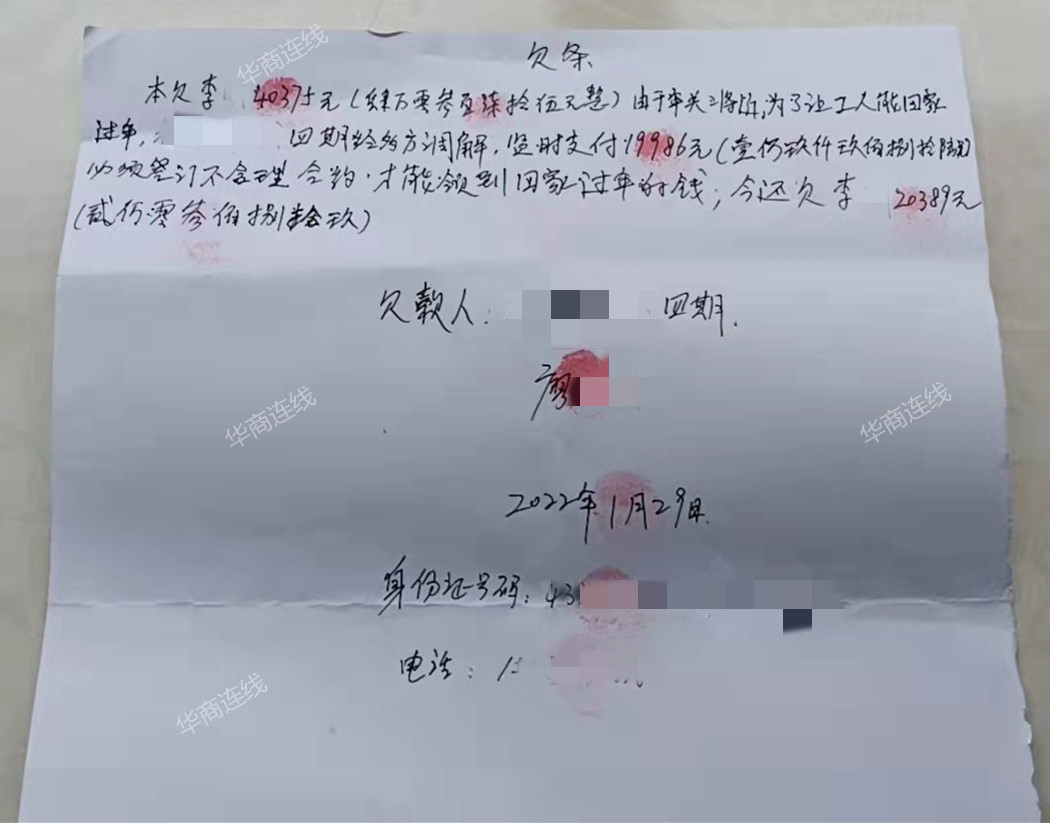 华商连线
欠条
本欠李 40375元（肆万零参百柒拾伍元整）由于年关将近，为了让工人能回家
过年， 四期经多方调解，暂时支付19986元（壹仟玖仟玖佰捌拾陆）
必须签订不合理合约.才能领到回家过年的钱；今还欠李 20389元
（贰仟零参佰捌拾玖）
欠款人： 四期.
廖
华商连线
华商连线
2022年1月29日.
身份证号码：43
电话：1
华商连线